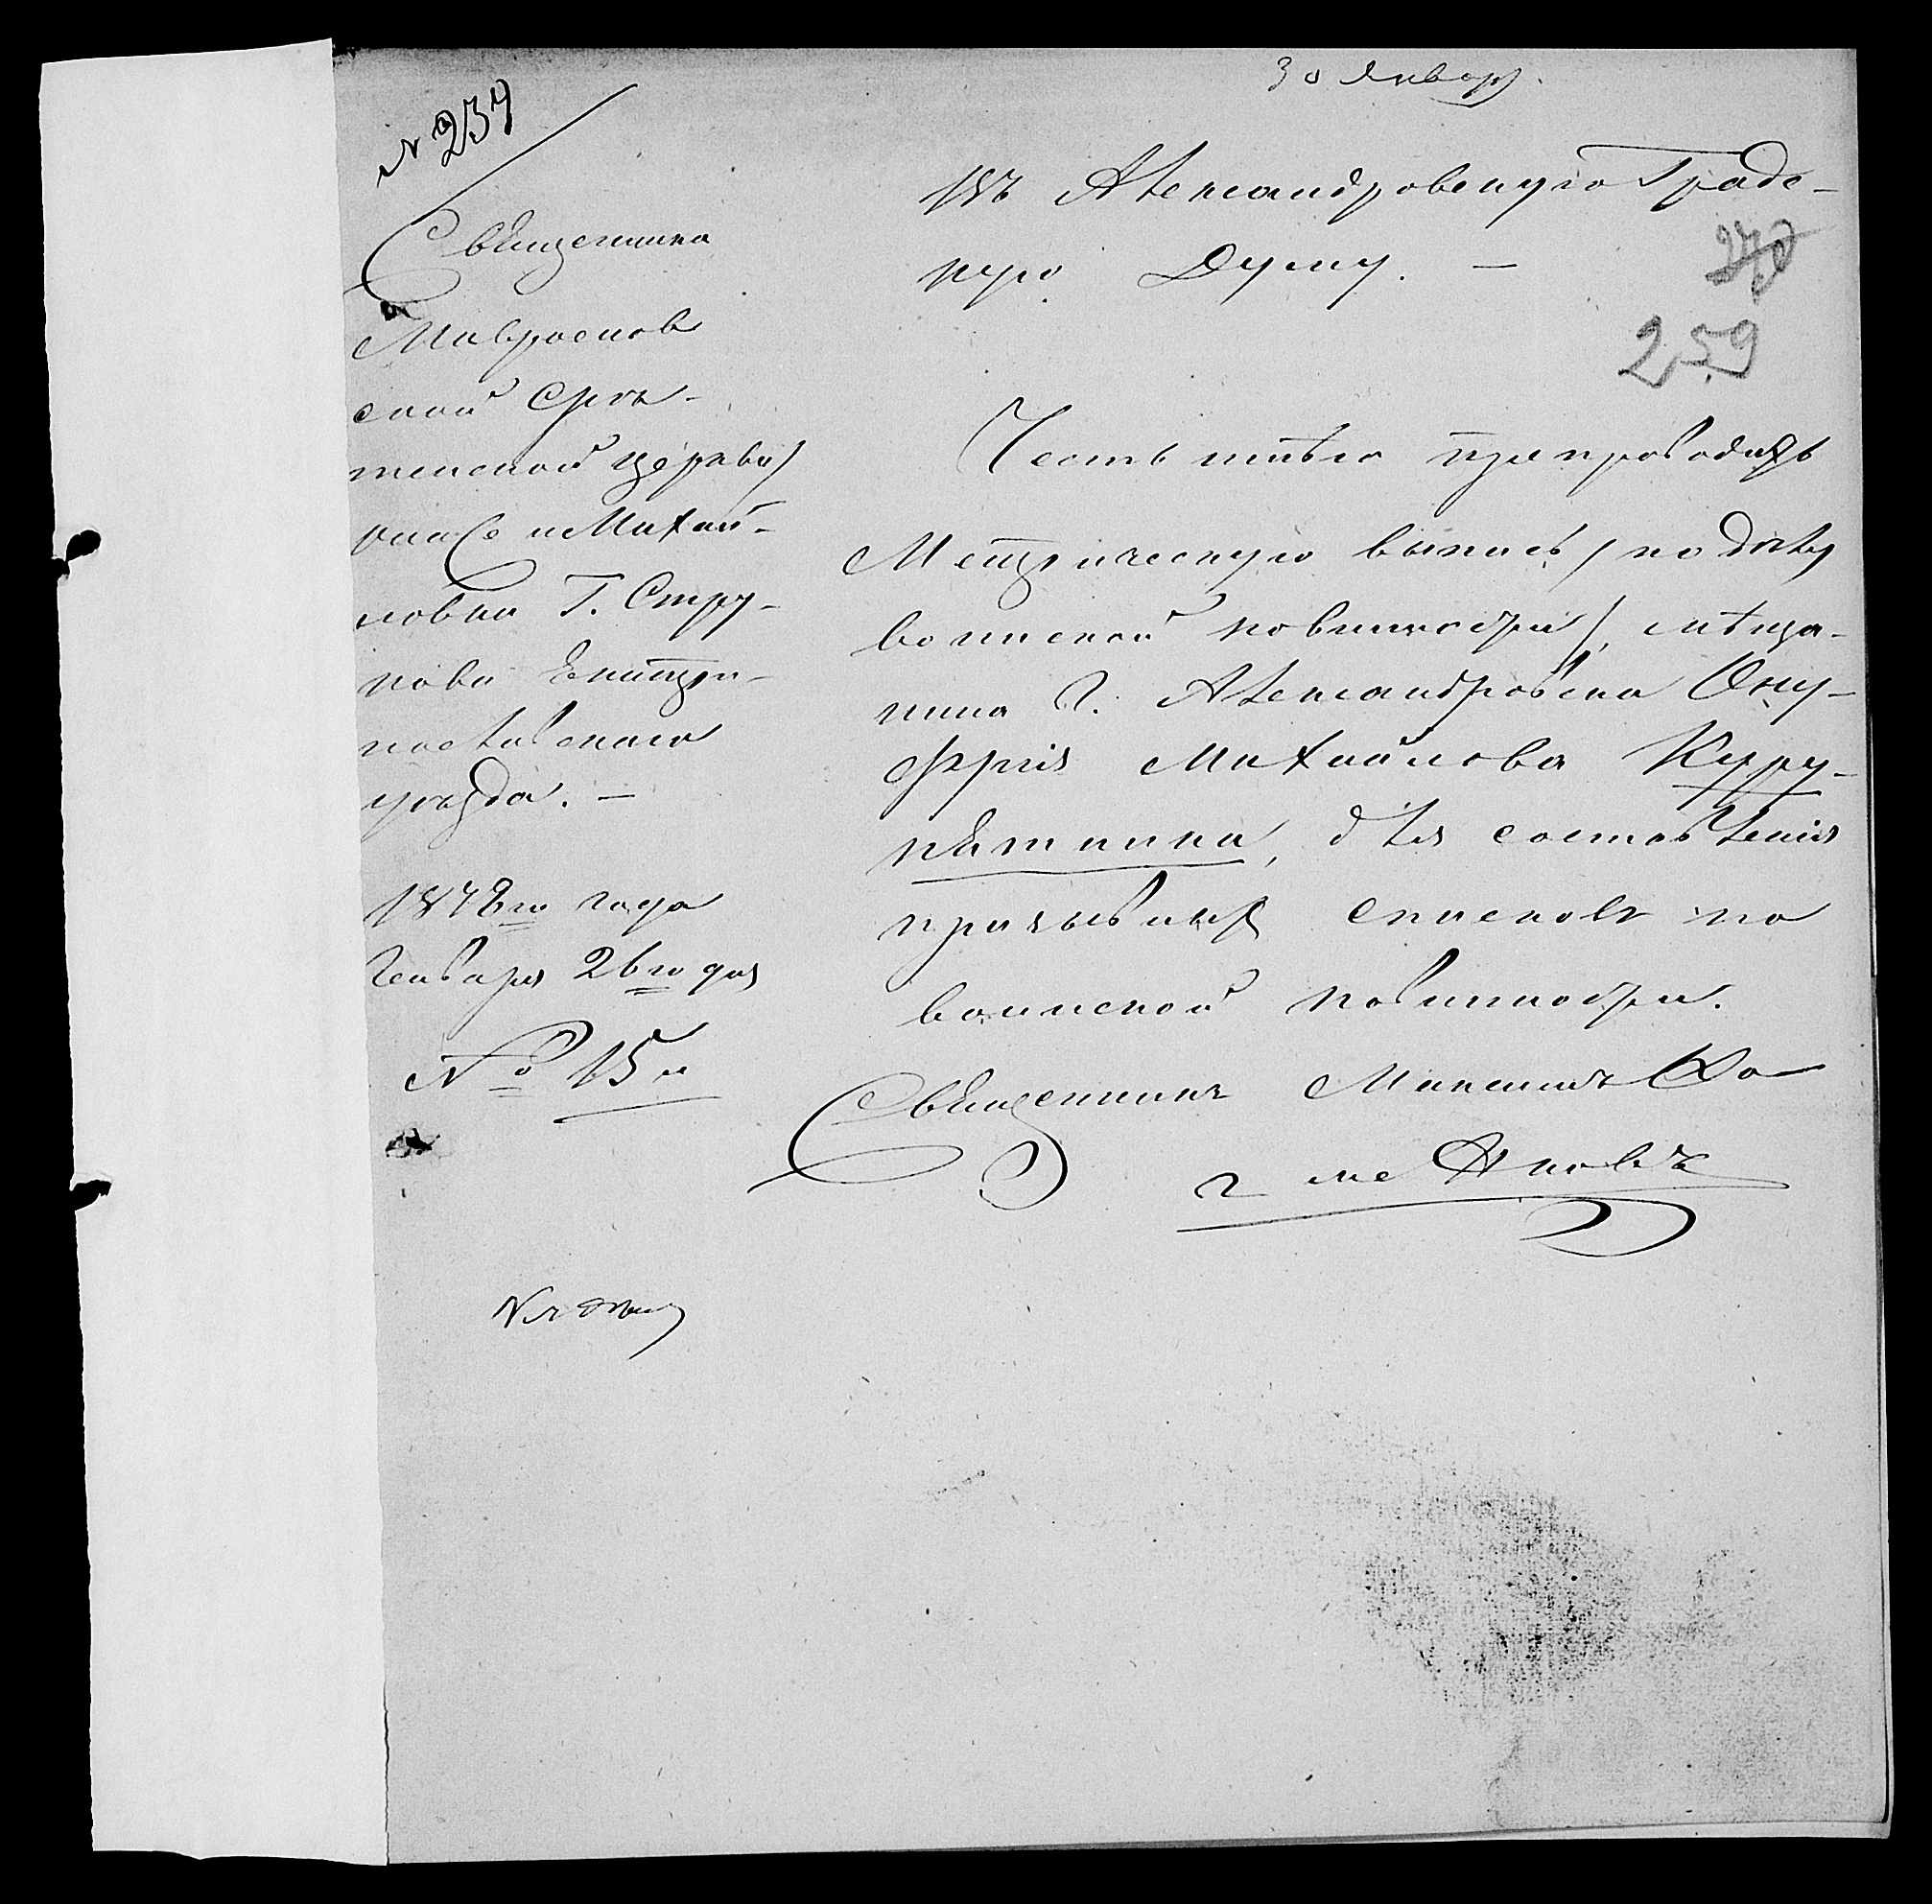 30 Январ.
№ 237
Священника
Мавринов
ской Срѣ-
тенской церкви
Михай-
ловки Г. Стру-
кова Екатери-
нославскаго
уѣзда. —
1878го года
Генваря 26го дня
№ 15й
Въ Александровскую Градс-
кую Думу. —
270
259
Честь имѣю препроводить
Метрическую выпись, по дѣлу
воинской повинности, мѣща-
нина г. Александровска Ону-
фрія Михайлова Куру-
пятника, для составленія
призывныхъ списковъ по
воинской повинности.
Священникъ Максимъ